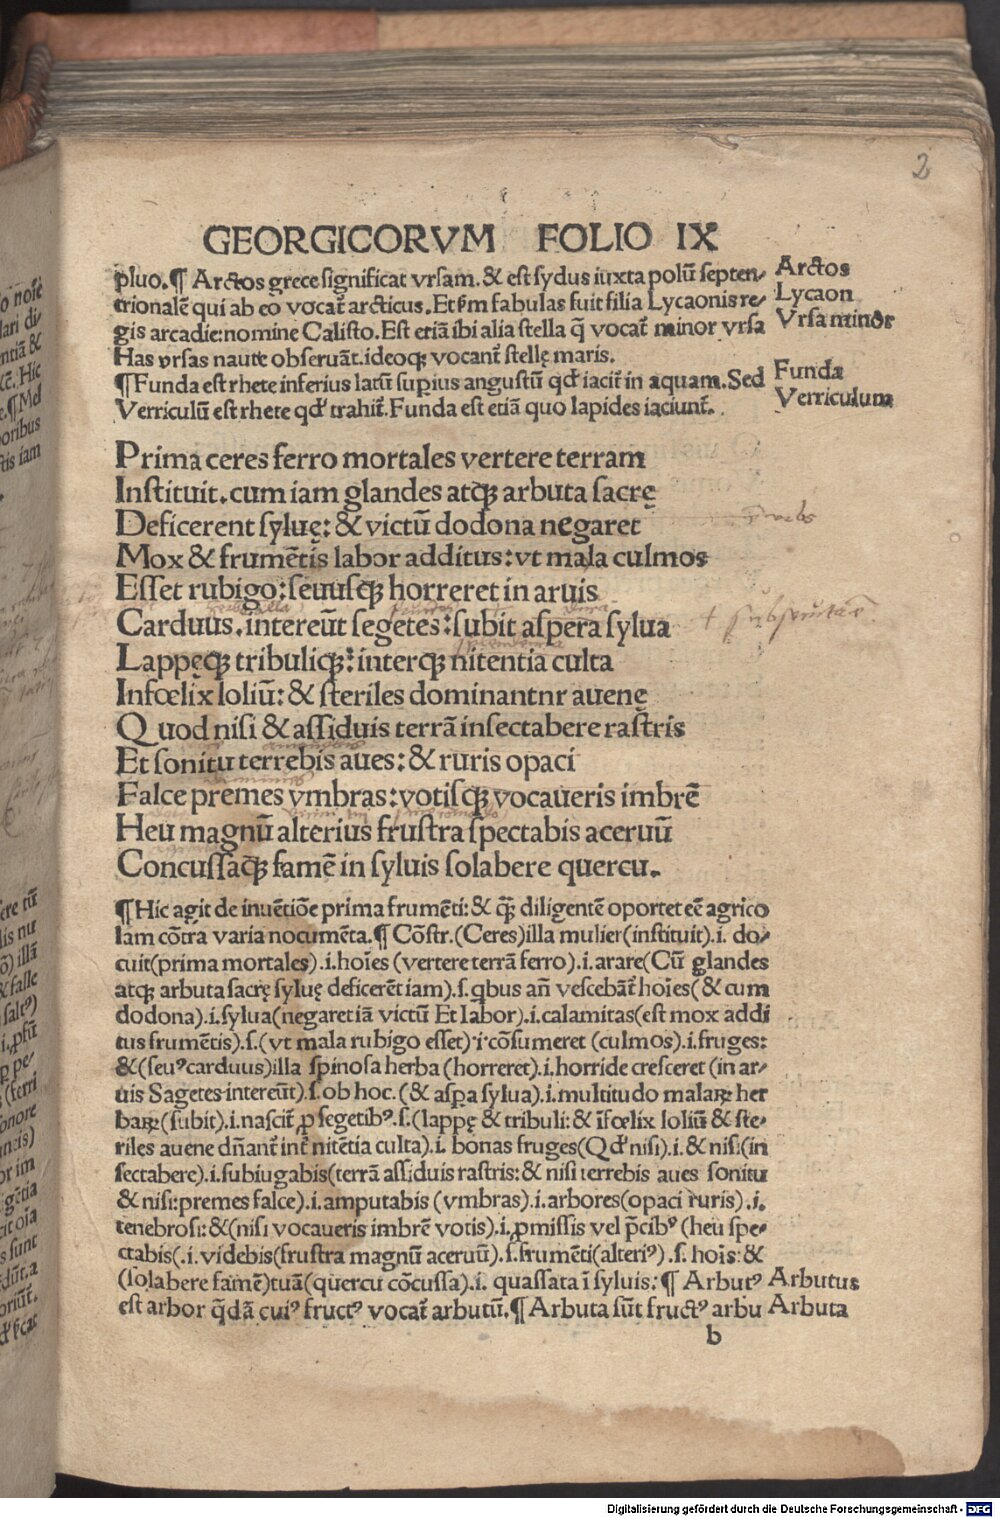 2
GEORGICORVM FOLIO IX
pluo.¶ Arctos grece significat vrsam. & est sydus iuxta polū septen-
trionalē qui ab eo vocat̄ arcticus. Et fabulas fuit filia Lycaonis re-
gis arcadie: nomine Calisto. Est etiā ibi alia stella q̄ vocat̄ minor vrsa
Has vrsas naute obseruāt. ideoqꝫ vocant̄ stellę maris.
¶Funda est rhete inferius latū suꝑius angustū qđ iacit̄ in aquam. Sed
Verriculū est rhete qđ trahit̄. Funda est etiā quo lapides iaciunt̄.
Arctos
Lycaon
Vrsa minor
Funda
Verriculum
Prima ceres ferro mortales vertere terram
Instituit. cum iam glandes atqꝫ arbuta sacrę
Deficerent syluę: & victū dodona negaret
Mox & frumētis labor additus: vt mala culmos
Esset rubigo: seuusqꝫ horreret in aruis
Carduus. intereūt segetes: subit aspera sylua
Lappęqꝫ tribuliqꝫ: interqꝫ nitentia culta
Infœlix loliū: & steriles dominantnr auenę
Quod nisi & assiduis terrā insectabere rastris
Et sonitu terrebis aues: & ruris opaci
Falce premes vmbras: votisqꝫ vocaueris imbrē
Heu magnū alterius frustra spectabis aceruū
Concussaqꝫ famē in syluis solabere quercu.
¶Hic agit de inuētiōe prima frumēti: & q̄ diligentē oportet eē agrico
lam cōtra varia nocumēta.¶ Cōstr. (Ceres) illa mulier (instituit) .i. do-
cuit (prima mortales) .i. hoīes (vertere terrā ferro) .i. arare (Cū glandes
atqꝫ arbuta sacrę syluę deficerēt iam) .s. qbus añ vescebāt̄ hoīes (& cum
dodona) .i. sylua (negaret iā victū Et labor) .i. calamitas (est mox addi
tus frumētis) .s. (vt mala rubigo esset) .i. cōsumeret (culmos) .i. fruges:
& (seuꝰ carduus) illa spinosa herba (horreret) .i. horride cresceret (in ar-
uis Sagetes intereūt) .s. ob hoc. (& asꝑa sylua) .i. multitudo malaꝝ her
baꝝ (subit) .i. nascit̄ ꝓ segetibꝰ .s. (lappę & tribuli: & īfœlix loliū & ste-
riles auene dn̄ant̄ int̄ nitētia culta) .i. bonas fruges (Qđ nisi) .i. & nisi (in
sectabere) .i. subiugabis (terrā assiduis rastris: & nisi terrebis aues sonitu
& nisi: premes falce) .i. amputabis (vmbras) .i. arbores (opaci ruris) .i.
tenebrosi: & (nisi vocaueris imbrē votis) .i. ꝓmissis vel p̄cibꝰ (heu spe-
ctabis (.i. videbis (frustra magnū aceruū) .s. frumēti (alteriꝰ) .s. hoīs: &
(solabere famē) tuā (quercu cōcussa) .i. quassata ī syluis: ¶ Arbutꝰ
est arbor q̄dā cuiꝰ fructꝰ vocat̄ arbutū.¶ Arbuta sūt fructꝰ arbu
Arbutus
Arbuta
b
Digitalisierung gefördert durch die Deutsche Forschungsgemeinschaft - DFG